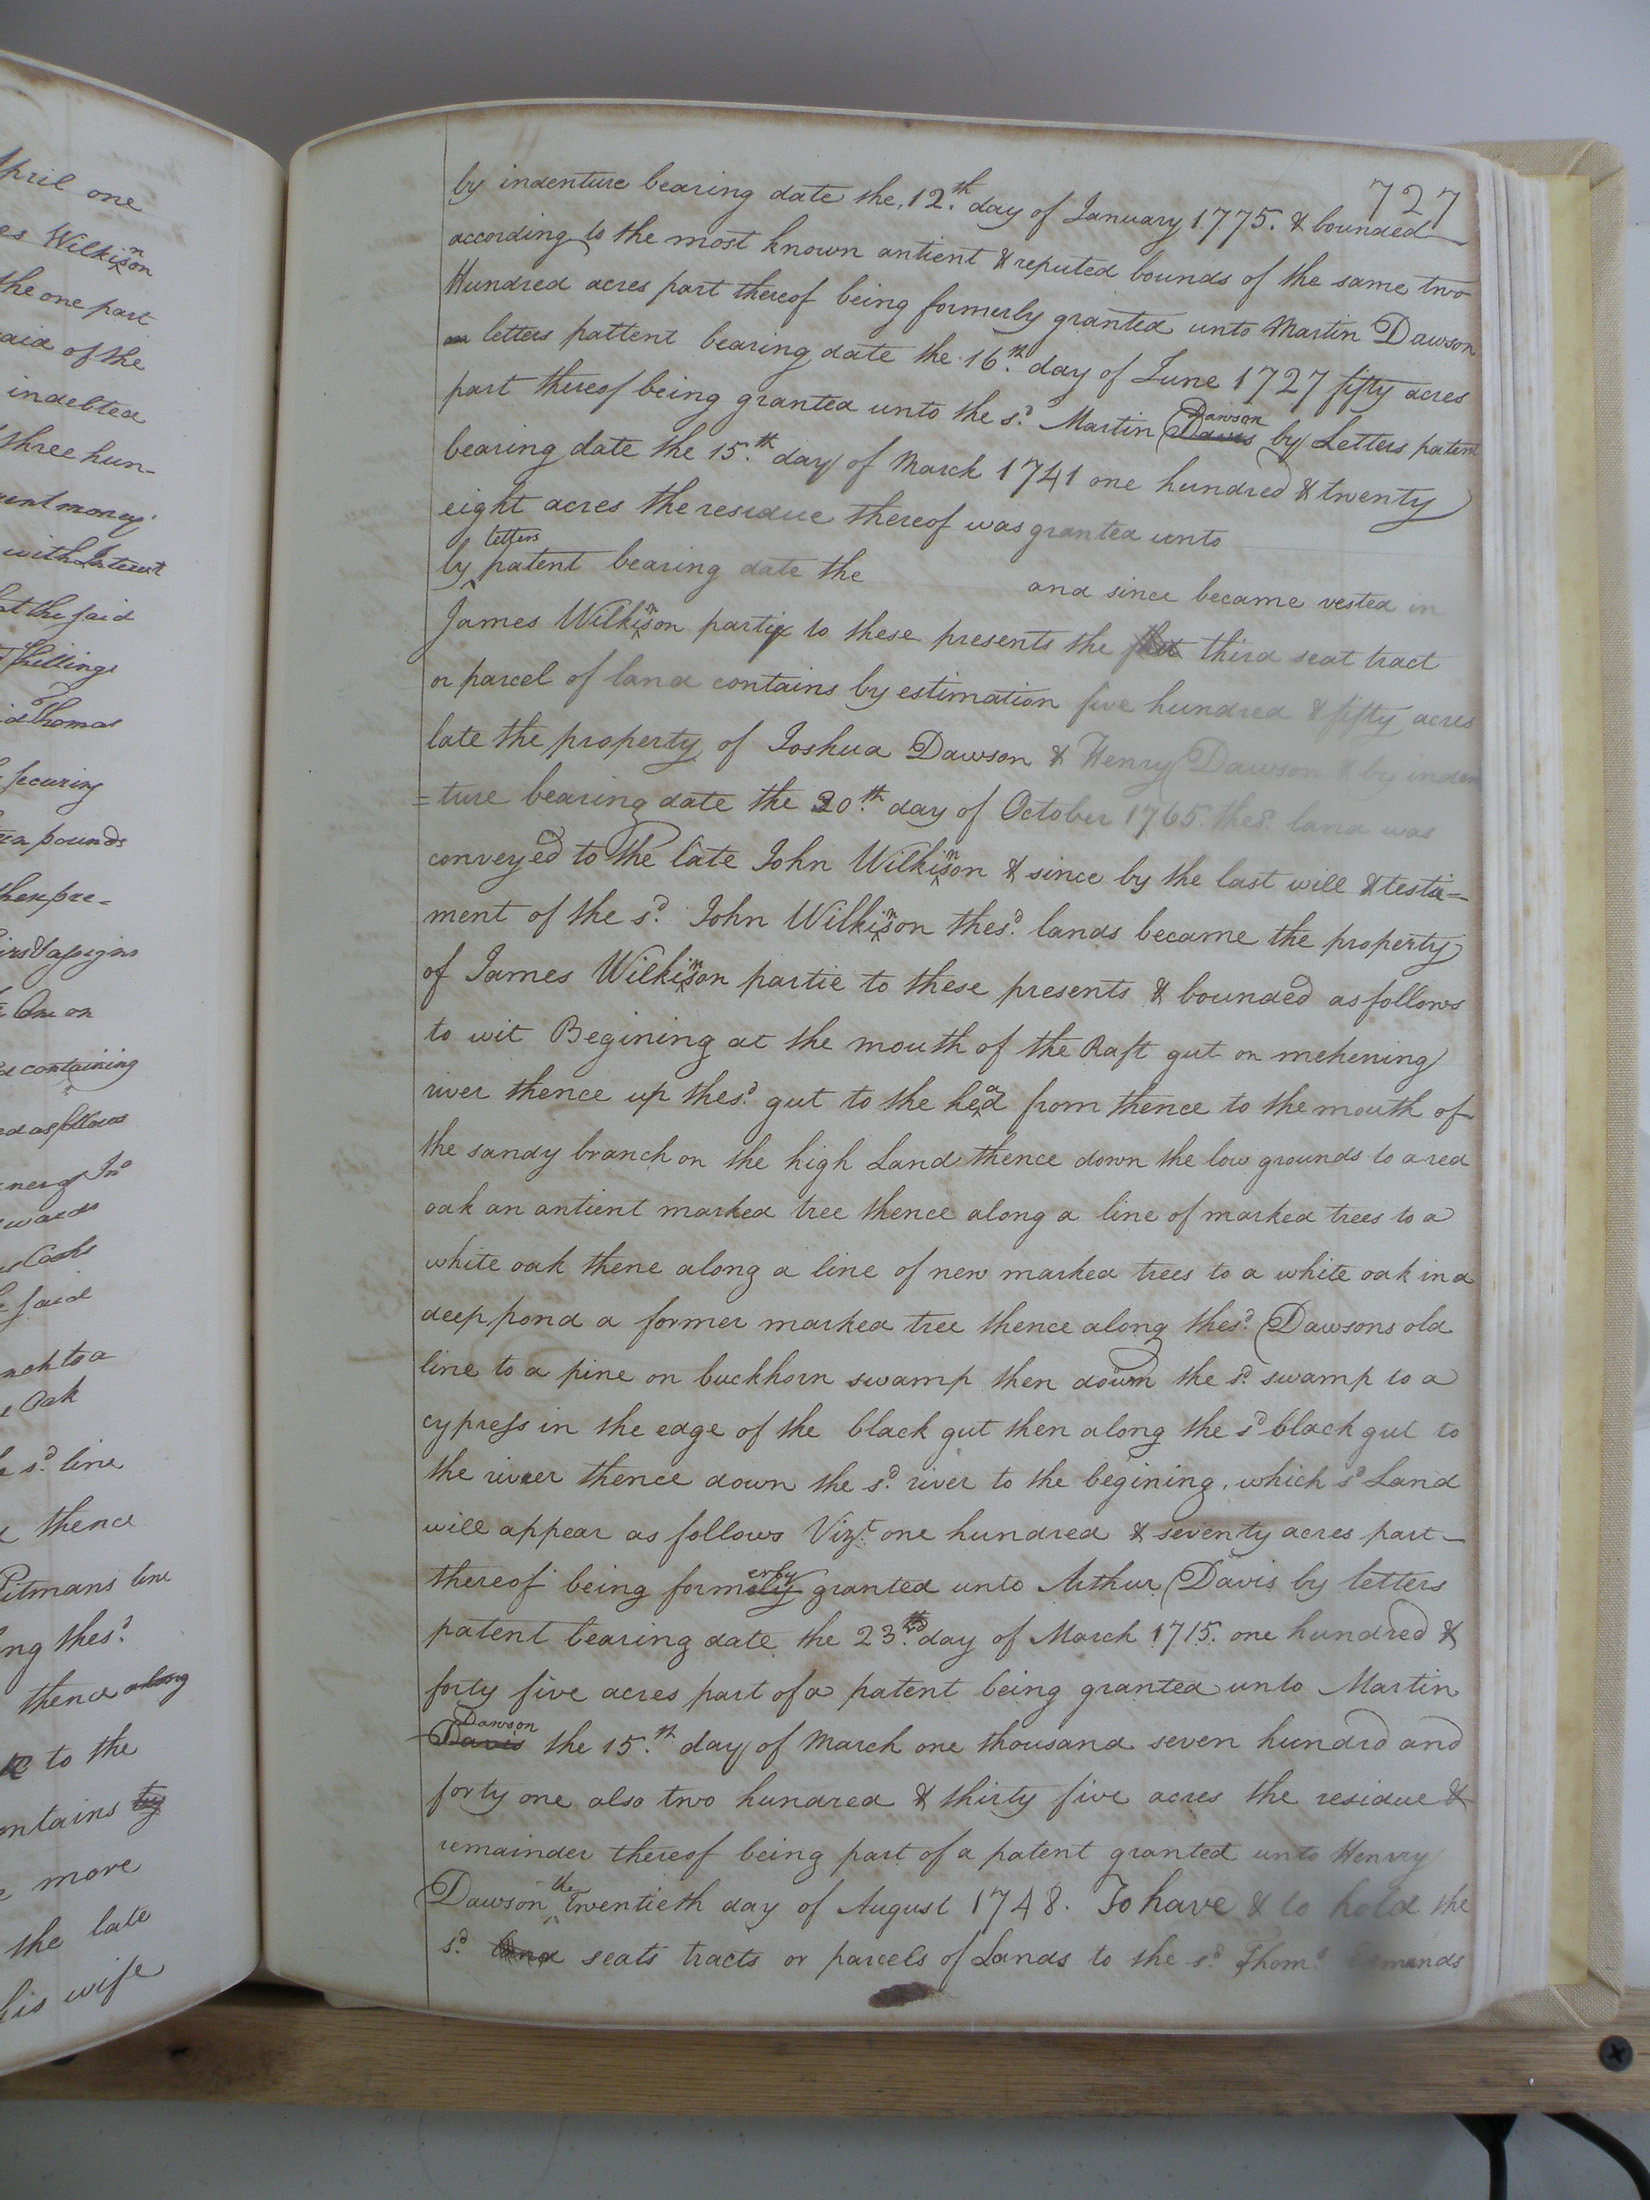 April one
es Wilkinson
the one part
aid of the
indebted
three hun-
rent money
with Interest
at the said
Shillings
id Thomas
securing
pounds
then pre=
assigns
One on
containing
ed as follows
ner of Jno
wards
said
nch to a
Oak
s.d line
thence
Pitmans line
ng thes.d
thence along
to the
ntains by
more
the late
his wife
727
by indenture bearing date the 12.th day of January 1775. & bounded
according to the most known antient & reputed bounds of the same two
Hundred acres part thereof being formerly granted unto Martin Dawson
letters pattent bearing date the 16.th day of June 1727 fifty acres
part thereof being granted unto the s.d Martin Davis Dawson by Letters patent
bearing date the 15.th day of March 1741 one hundred & twenty
eight acres the residue thereof was granted unto
by letters patent bearing date the and since became vested in
James Wilkinson partie to these presents the third seat tract
or parcel of land contains by estimation five hundred & fifty acres
late the property of Joshua Dawson & Henry Dawson & by inden
=ture bearing date the 30.th day of October 1765. thes.d land was
conveyed to the late John Wilkinson & since by the last will & testa=
ment of the s.d John Wilkinson thes.d lands became the property
of James Wilkinson partie to these presents & bounded as follows
to wit Begining at the mouth of the Raft gut on mehening
river thence up thes.d gut to the head from thence to the mouth of
the sandy branch on the high Land thence down the low grounds to a red
oak an antient marked tree thence along a line of marked trees to a
white oak thene along a line of new marked trees to a white oak in a
deep pond a former marked tree thence along thes.d Dawsons old
line to a pine on buckhorn swamp then down the s.d swamp to a
cypress in the edge of the black gut then along the s.d black gut to
the river thence down the s.d river to the begining, which s.d Land
will appear as follows Vizt. one hundred & seventy acres part
thereof being formerly granted unto Arthur Davis by letters
patent bearing date the 23.rd day of March 1715. one hundred &
forty five acres part of a patent being granted unto Martin
Davis Dawson the 15.th day of March one thousand seven hundrd and
forty one also two hundred & thirty five acres the residue &
remainder thereof being part of a patent granted unto Henry
Dawson the twentieth day of August 1748. To have & to hold the
s.d land seats tracts or parcels of Lands to the s.d Thom.s Edmunds